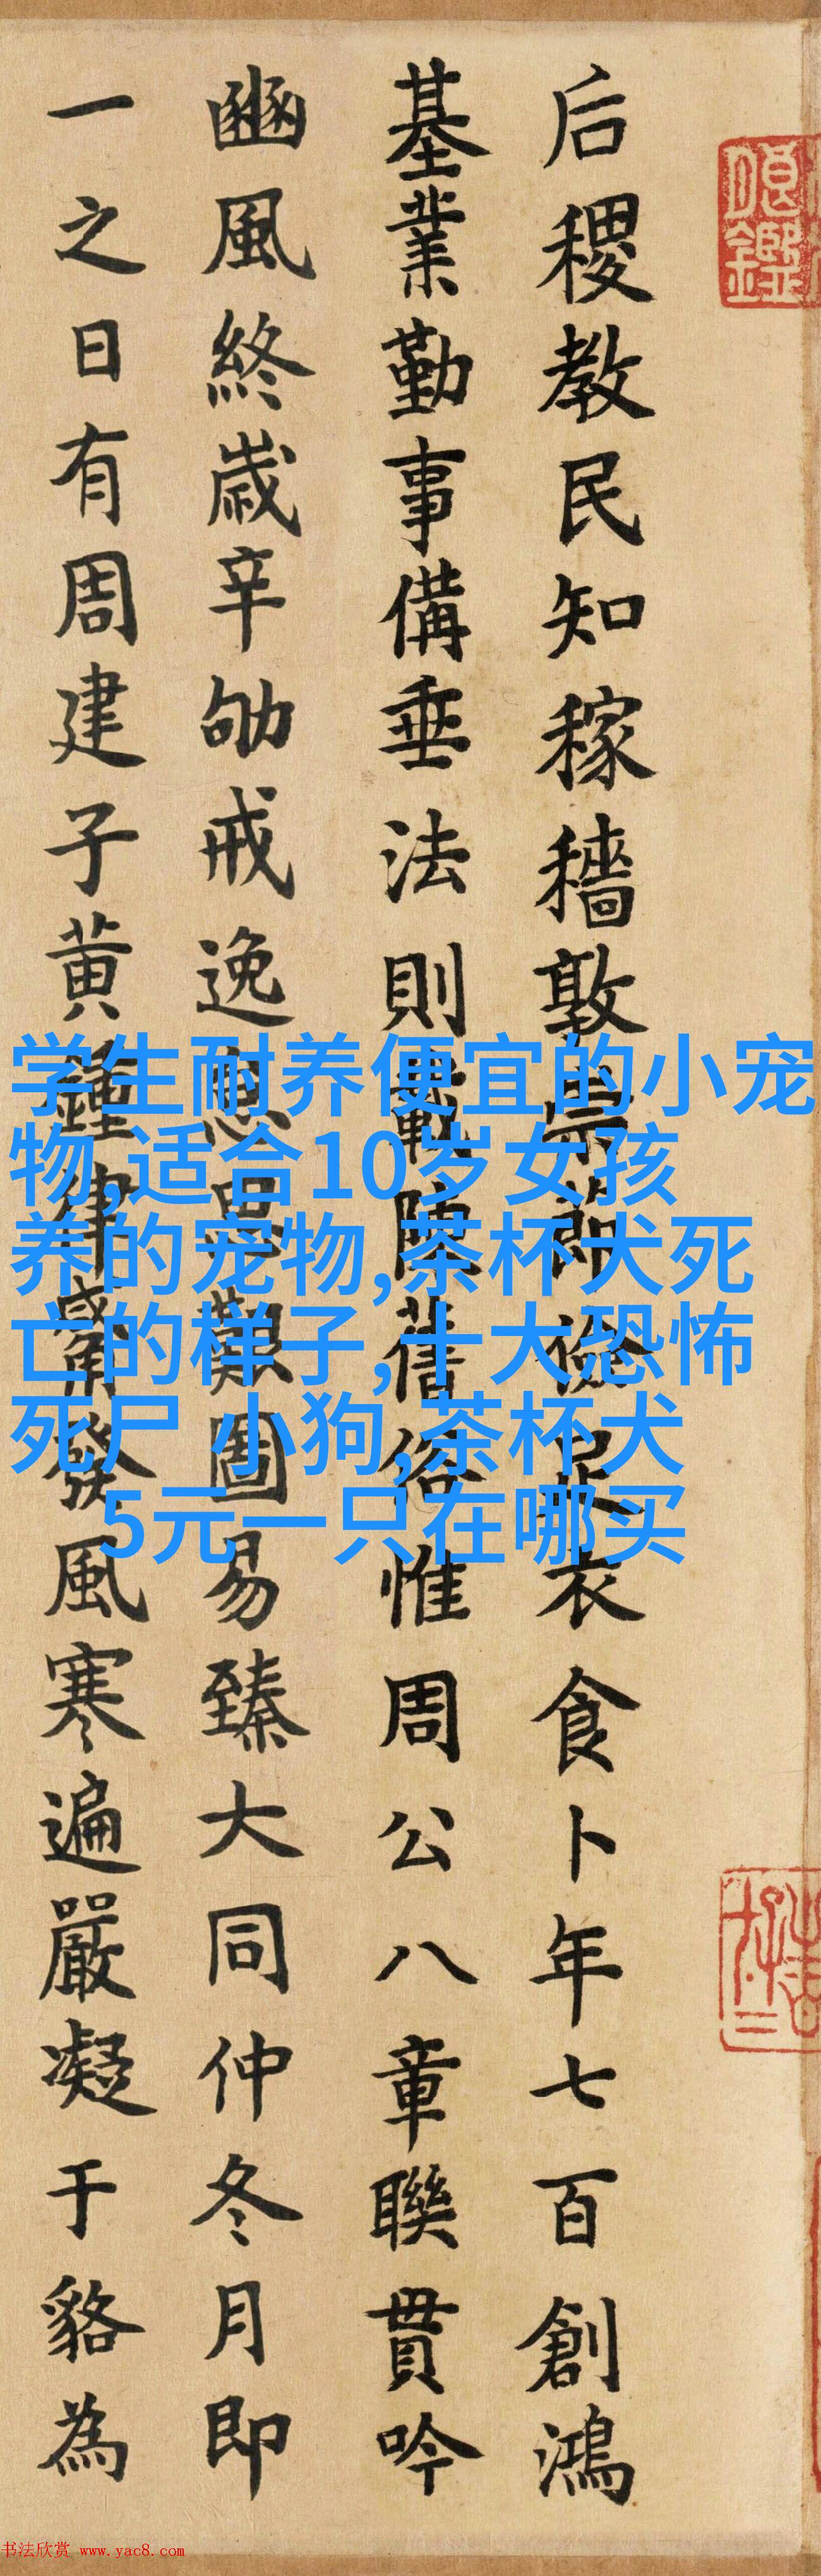 后稷教民知稼穡敦崇節儉衣食卜年七百創鴻
基業勤事備垂法則載陳舊俗惟周公八章聯貫吟
豳風終歲辛劬戒逸思艱圖易臻大同仲冬月即
一之日有周建子黃鍾律觱發風寒遍嚴凝于貉為
学生耐养便宜的小宠
物,适合10岁女孩
养的宠物,茶杯犬死
亡的样子,十大恐怖
死尸 小狗,茶杯犬
5元一只在哪买
书法欣赏 www.yac8.com